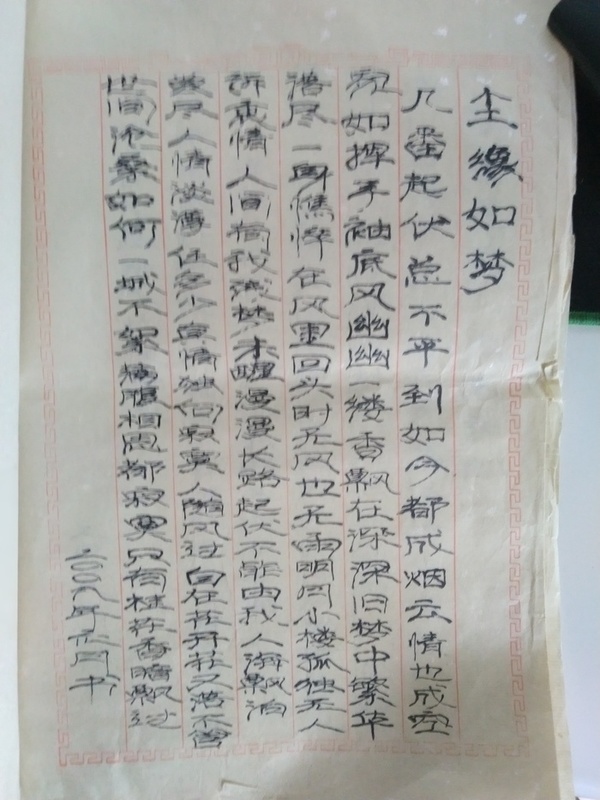 尘缘如梦
几番起伏总不平到如今都成烟云情也成空
宛如挥手袖底风幽幽一缕香飘在深深旧梦中繁华
落尽一身憔悴在风里回头时无风也无雨明月小楼孤独无人
诉衷情人间有我残梦未醒漫漫长路起伏不能由我人海飘泊
尝尽人情淡薄任多少真情独向寂寞人随风过自在花开花又落不管
世间沧桑如何一城不絮满腹相思都寂寞只有桂花香暗飘过
二〇〇九年六月书